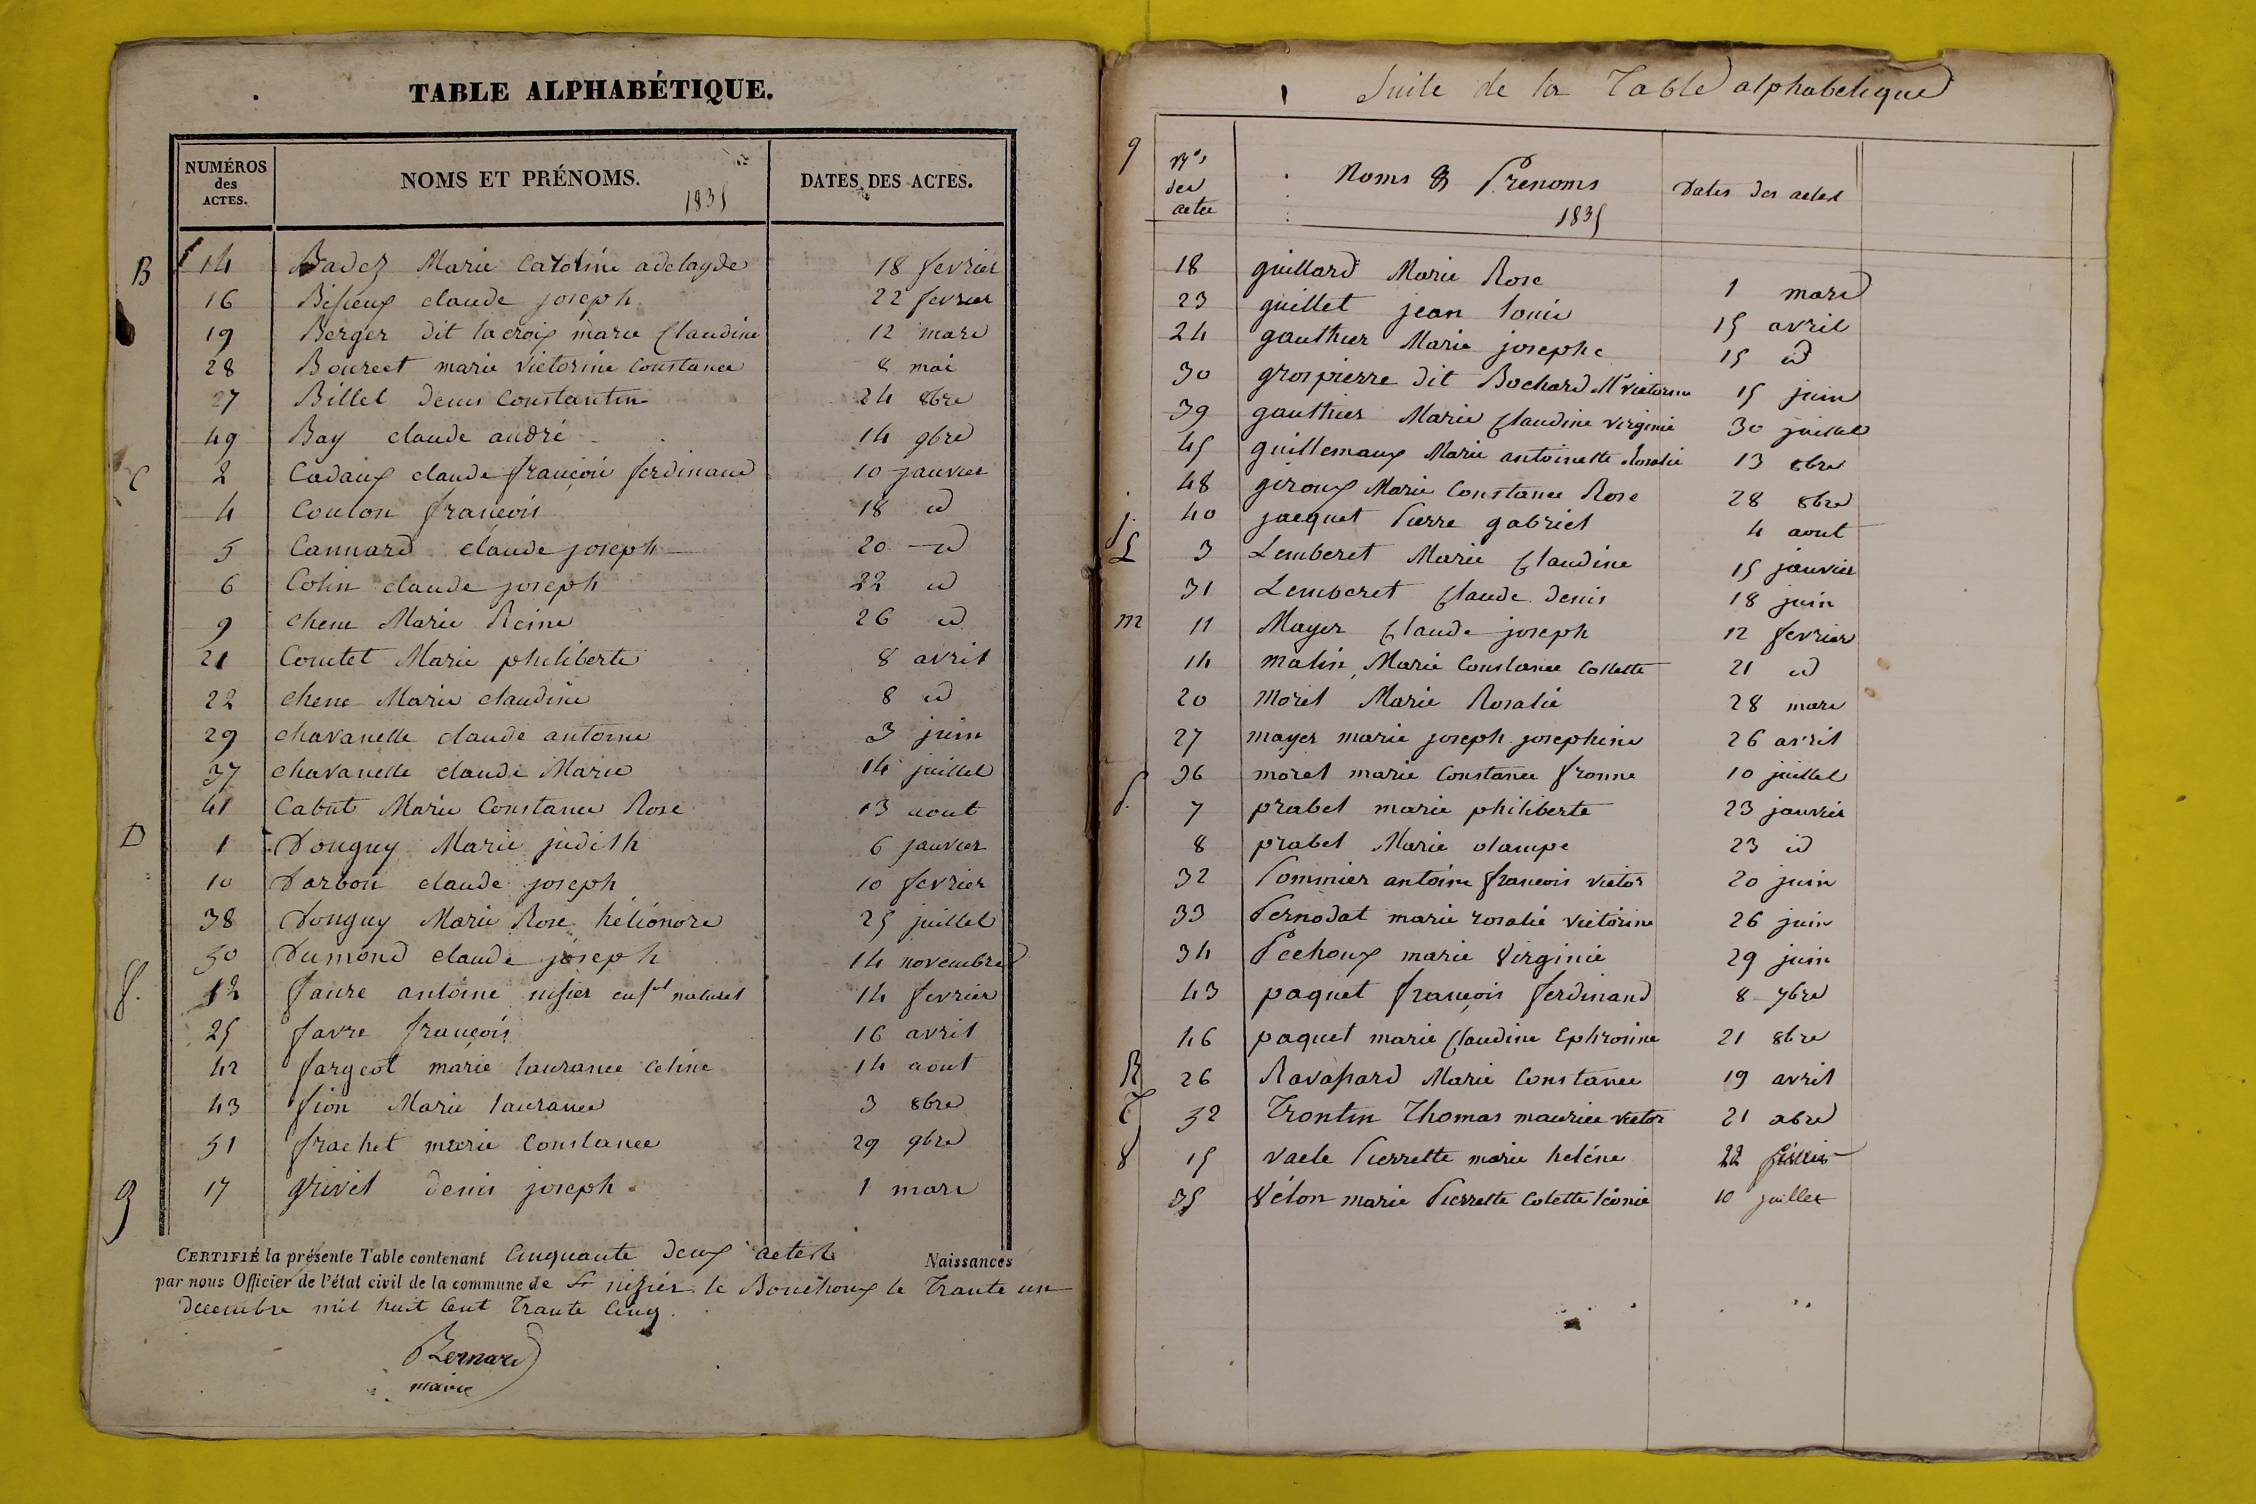 TABLE ALPHABÉTIQUE.
NUMÉROS des ACTES. NOMS ET PRÉNOMS. 1835 DATES DES ACTES.
B 14 Badez Marie Caroline adelayde 18 fevrier
16 Bisieux claude joseph 22 fevrier
19 Berger dit lacroix marie Claudine 12 mars
28 Bourcet marie victorine Constance 8 mai
27 Billet denis Constantin 24 8bre
49 Bay claude andré 14 9bre
C 2 Cadaux claude françois ferdinand 10 janvier
4 Coulon françois 18 id
5 Cannard claude joseph 20 id
6 Colin claude joseph 22 id
9 chene Marie Reine 26 id
21 Comtet Marie philiberte 8 avril
22 chene Marie claudine 8 id
29 chavanelle claude antoine 3 juin
37 chavanelle claude Marie 14 juillet
41 Cabut Marie Constance Rose 13 aout
D 1 Donguy Marie judith 6 janvier
10 Darbon claude joseph 10 fevrier
38 Donguy Marie Rose héliónore 25 juillet
50 Dumond claude joseph 14 novembre
f. 12 faure antoine nisier enft naturel 14 fevrier
25 favre françois 16 avril
42 fargeot marie laurance celine 14 aout
43 fion Marie laurance 3 8bre
51 frachet marie Constance 29 9bre
g 17 grivet denis joseph 1 mars
CERTIFIÉ la présente Table contenant Cinquante deux actes de Naissances
par nous Officier de l'état civil de la commune de St nizier le Bouchoux le Trante un
decembre mil huit Cent Trante Cinq.
Bernard
maire
Suite de la Table alphabetique
g Nos des actes Noms & Prenoms 1835 Dates des actes
18 guillard Marie Rose 1 mars
23 guillet jean louis 15 avril
24 gauthier Marie josephe 15 id
30 grospierre dit Bochard Me victorine 15 juin
39 gauthier Marie Claudine virginie 30 juillet
45 guillemaux Marie antoinette Rosalie 13 8bre
48 giroux Marie Constance Rose 28 8bre
j. 40 jacquet Pierre gabriel 4 aout
L 3 Lemberet Marie Claudine 15 janvier
31 Lemberet Claude denis 18 juin
m 11 Mayer Claude joseph 12 fevrier
14 matin Marie Constance Collette 21 id
20 Morel Marie Rosalie 28 mars
27 mayer marie joseph josephine 26 avril
36 morel marie Constance fronne 10 juillet
p. 7 prabel marie philiberte 23 janvier
8 prabel Marie olampe 23 id
32 Pommier antoine francois victor 20 juin
33 Pernodat marie rosalie victorine 26 juin
34 Pechoux marie Virginie 29 juin
43 paquet françois ferdinand 8 7bre
46 paquet marie Claudine Ephrosine 21 8bre
R 26 Ravassard Marie Constance 19 avril
T 52 Trontin Thomas maurice victor 21 xbre
V 15 vaele Pierrette marie heléne 22 fevrier
35 Vélon marie Pierrette Colette léonie 10 juillet